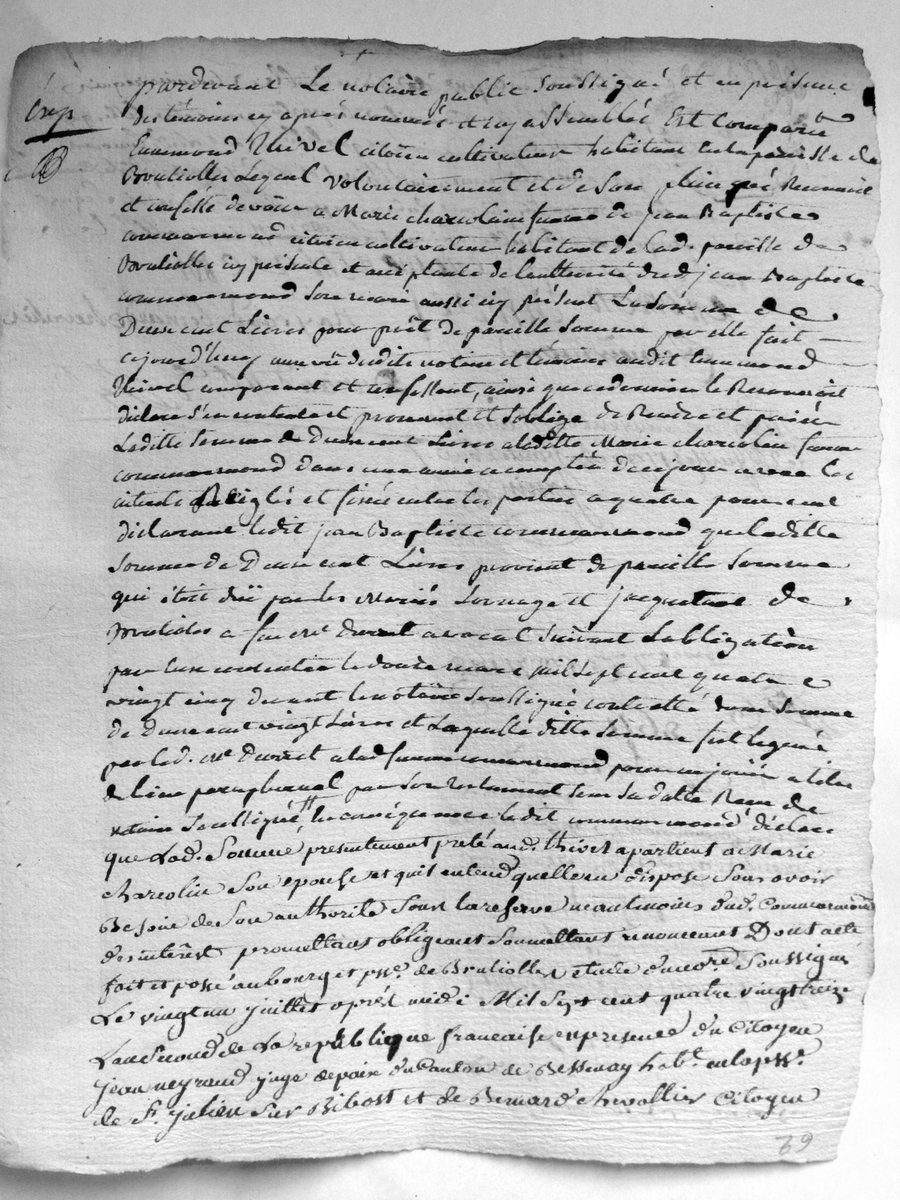 pardevant Le notaire public Soussigné et en présence
Exp
des témoins cy après nommés et cy assemblés Est comparu
Ennemond Thivel citoien cultivateur habitant en la paroisse de
Brullioles Lequel volontairement et de son plein gré Reconnoit
et confesse devoir a Marie charcolin femme de jean Baptiste
commarmond citoien cultivateur habitant de lad. paroisse de
Brullioles cy présente et acceptante de l'authorité dud jean Baptiste
commarmond son mari aussi cy présent La Somme de
Deux cent Livres pour prêt de pareille Somme par elle fait
cejourd'huy au vû desdits notaire et témoins audit Ennemond
Thivel et confessant, ainsi que ce dernier le Reconnoit
déclare s'en contente et promet et s'oblige de Rendre et paier
Laditte Somme de Deux cent Livres a laditte Marie charcolin femme
commarmond dans une année a compter de ce jour avec les
intérêts Réglés et fixés entre les parties a quatre pour cent
déclarant ledit jean Baptiste commarmond que laditte
Somme de Deux cent Livres provient de pareille Somme
qui étoit düe par les Mariés et de
Brullioles a feu Me Durret avocat Suivant L'obligation
par eux consentie le douze mars mil Sept cent quatre
vingt cinq devant le notaire Soussigné contenant une Somme
de deux cent vingt Livres et Laquelle ditte Somme fut léguée
par led. Me Durret a lad femme commarmond pour en jouir a titre
de bien paraphernal par Son testament Sous Sa datte Reçu du
notaire Soussigné En conséquence ledit commarmond déclare
que Lad. Somme présentement preté aud. thivel apartient a Marie
charcolin Son epouse et qu'il entend quelle en dispose Sans avoir
Besoin de Son authorité Sous la reserve neantmoins dud. Commarmond
d'interêst promettant obligeant Soumettant renoncant Dont acte
fait et passé au bourg et psse. de Brullioles etude du notre. Soussigné
Le vingt un juillet après midi Mil Sept cent quatre vingt treize
L'an Second de La république francaise en presence du Citoyen
jean neyrand juge de paix du Canton de Bessenay habt. en la psse.
de St. julien Sur Bibost et de Bernard chevallier Citoyen
69